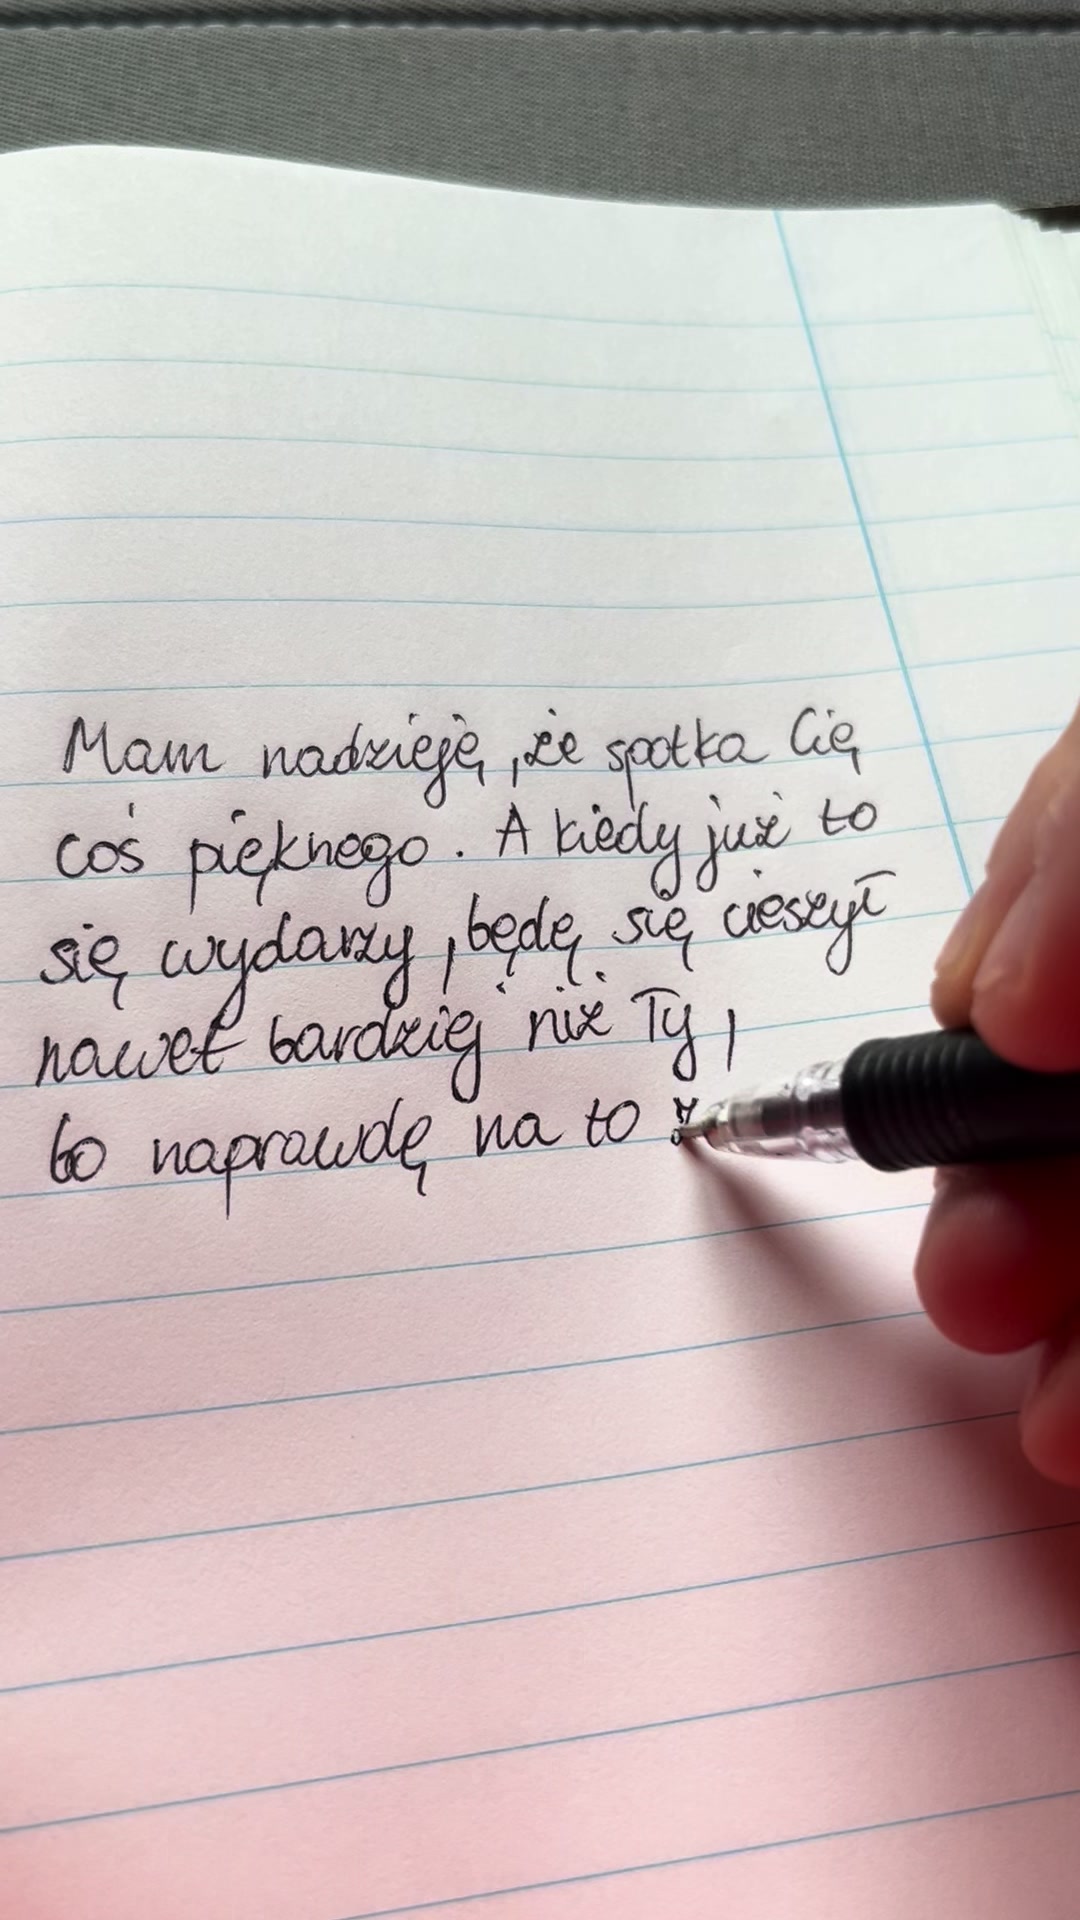 Mam nadzieję, że spotka Cię
coś pięknego. A kiedy już to
się wydarzy, będę się cieszył
nawet bardziej niż Ty,
bo naprawdę na to